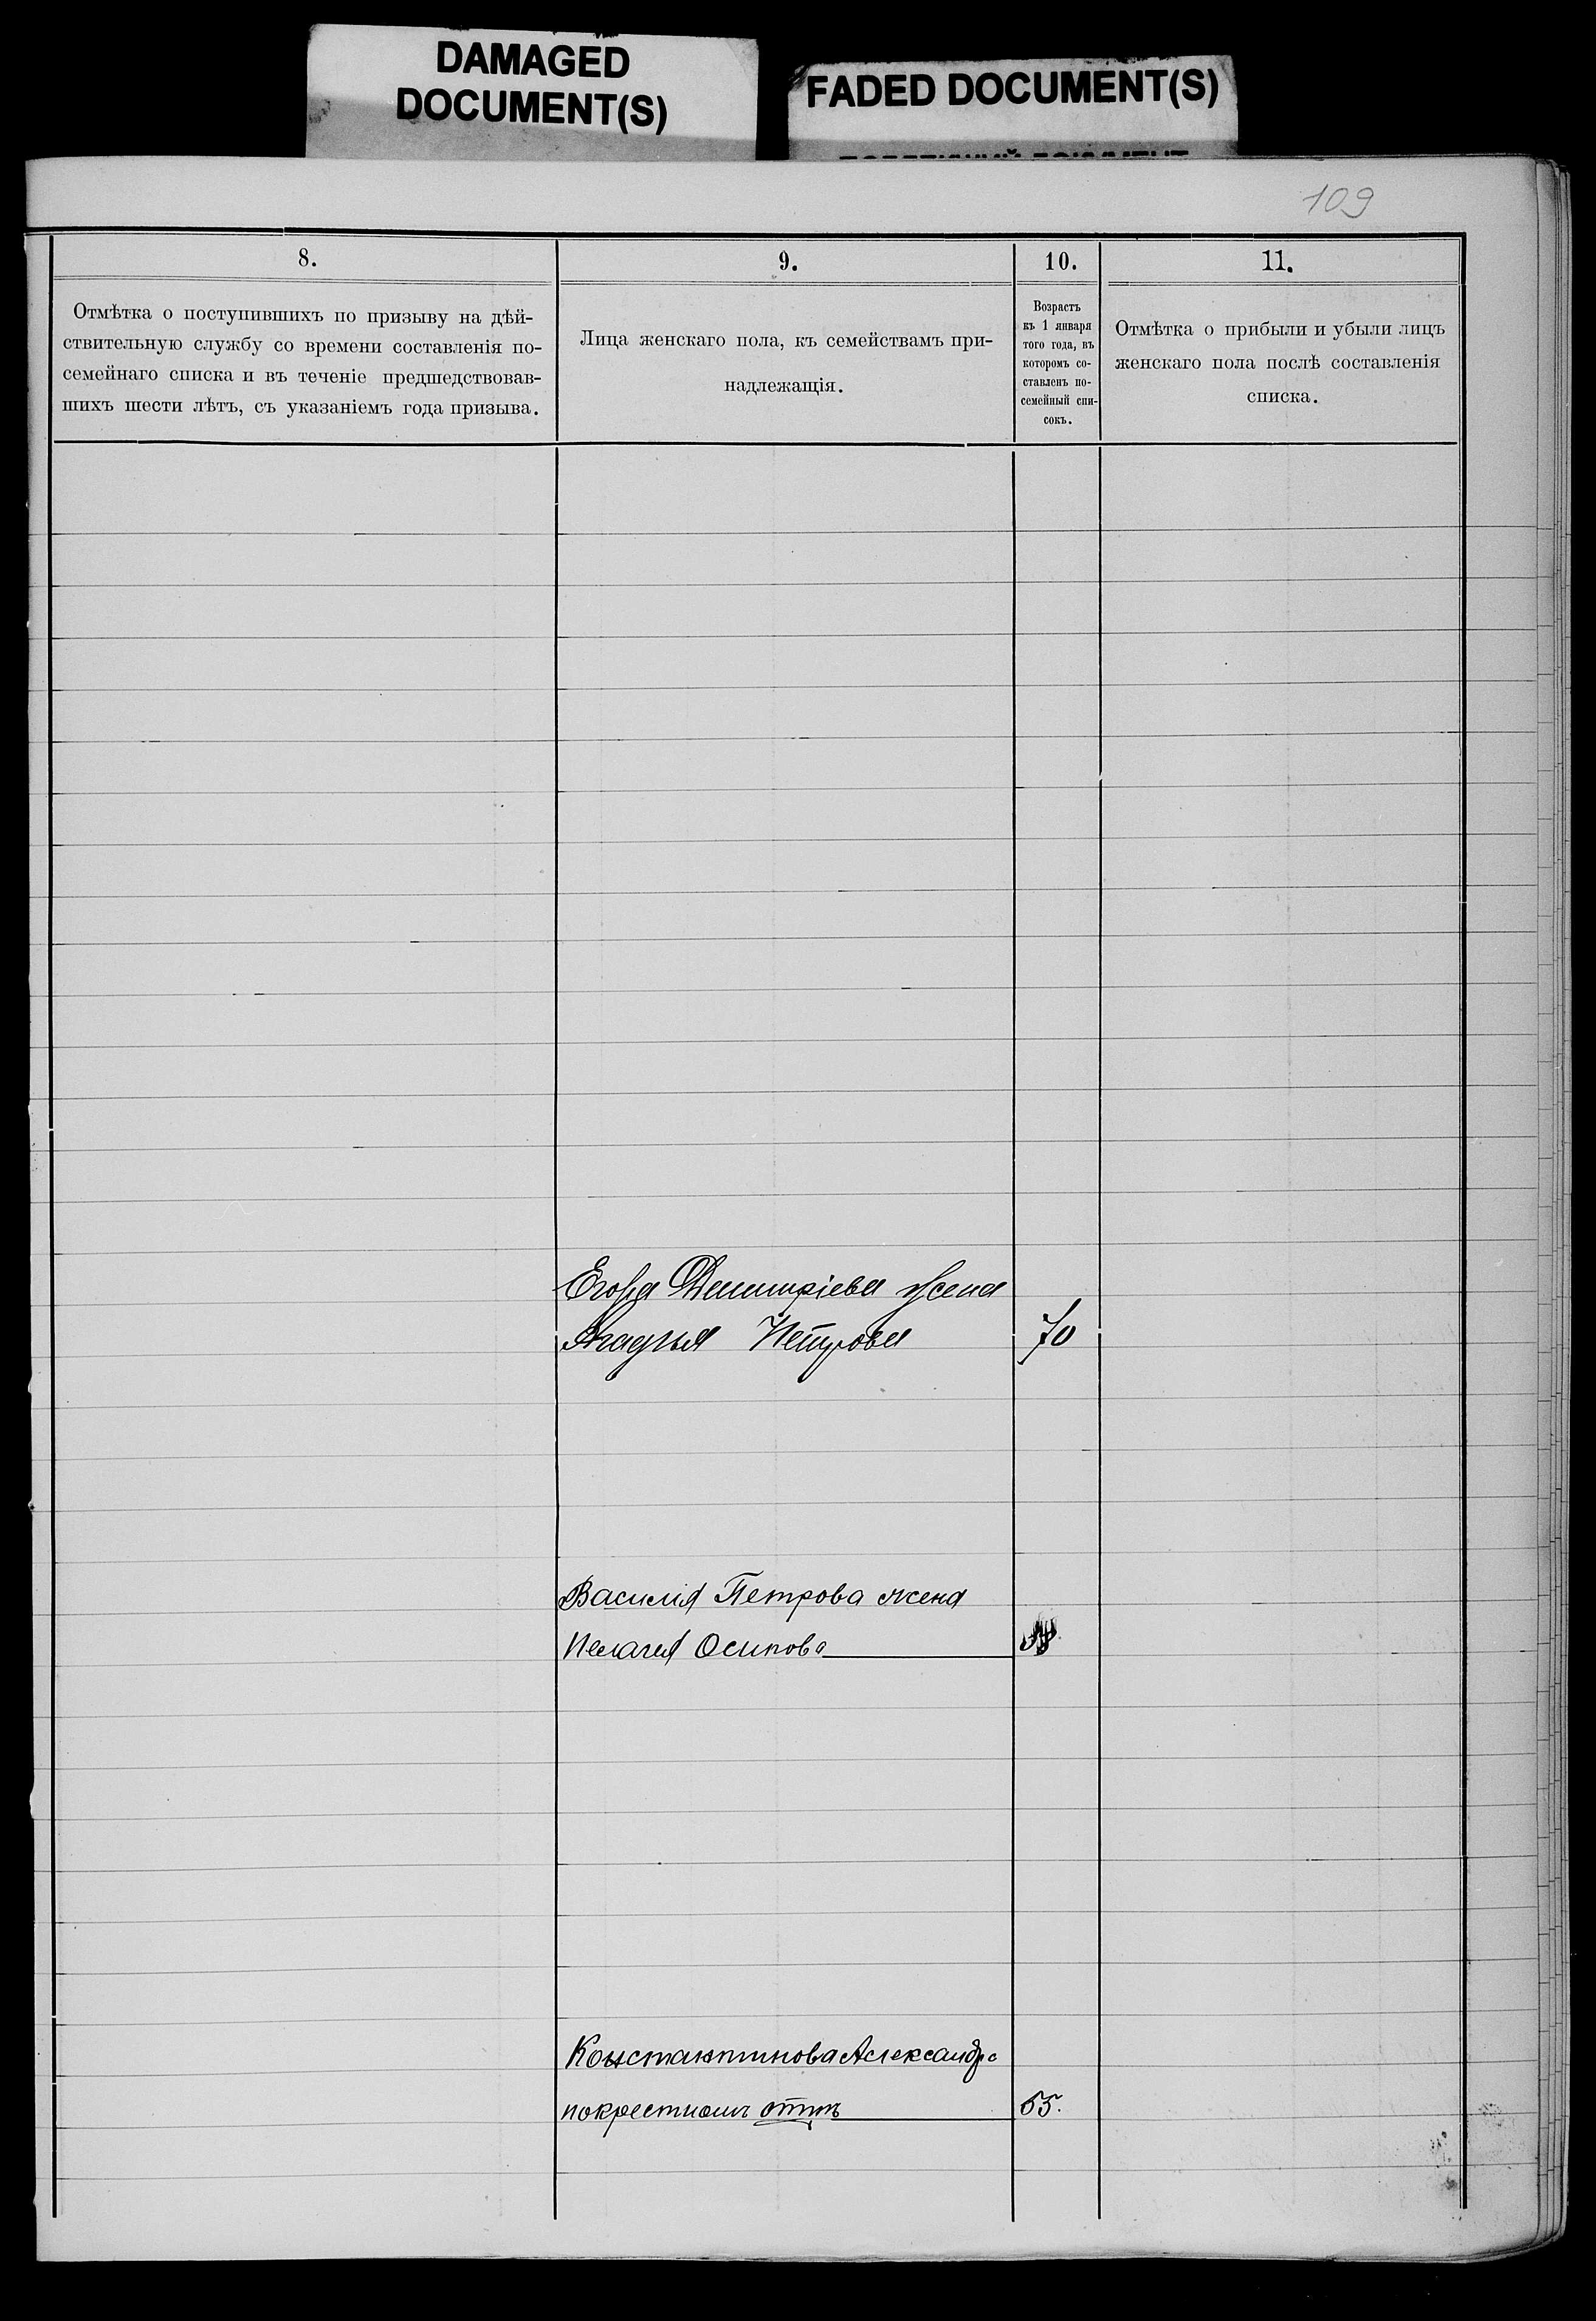 DAMAGED
DOCUMENT(S)
FADED DOCUMENT(S)
109
8.
Отмѣтка о поступившихъ по призыву на дѣй-
ствительную службу со времени составленія по-
семейнаго списка и въ теченіе предшедствовав-
шихъ шести лѣтъ, съ указаніемъ года призыва.
9.
Лица женскаго пола, къ семействамъ при-
надлежащія.
10.
Возрастъ
къ 1 января
того года, въ
которомъ со-
ставленъ по-
семейный спи-
сокъ.
11.
Отмѣтка о прибыли и убыли лицъ
женскаго пола послѣ составленія
списка.
Егора Дмитріева жена
Петрова 70
Василія Петрова жена
Пелагея Осипова
Константинова Александра
по крестному отцъ 55.